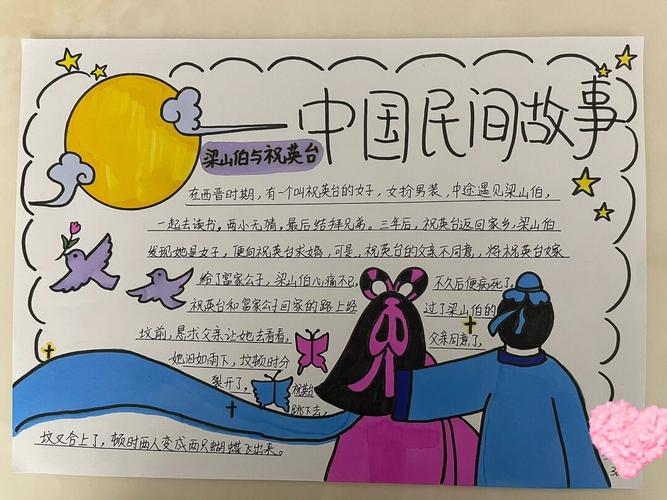 中国民间故事
梁山伯与祝英台
在西晋时期，有一个叫祝英台的女子，女扮男装，中途遇见梁山伯，
一起去读书。两小无猜，最后结拜兄弟。三年后，祝英台返回家乡，梁山伯
发现她是女子，便向祝英台求婚，可是，祝英台的父亲不同意，将祝英台嫁
给了富家公子，梁山伯心痛不已，不久后便病死了。
祝英台和富家公子回家的路上经过了梁山伯的
坟前，恳求父亲让她去看看，父亲同意了，
她泪如雨下，坟顿时分
裂开了，祝英台
跳下去，
坟又合上了，顿时两人变成两只蝴蝶飞出来。